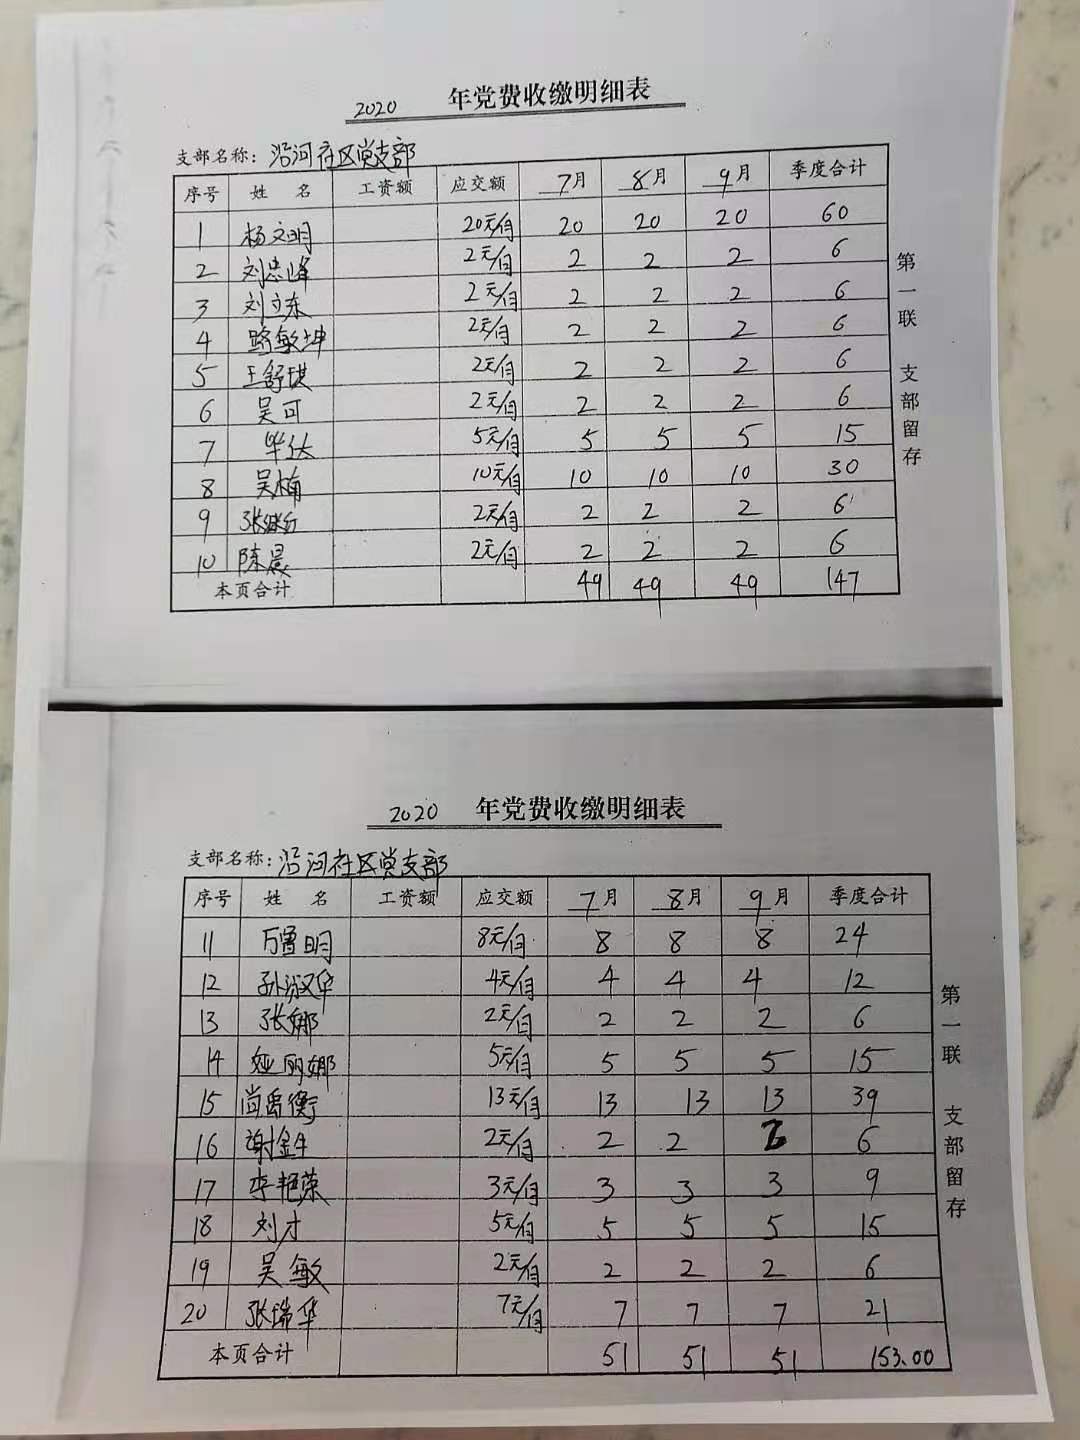 2020 年党费收缴明细表
支部名称：沿河社区党支部
序号 姓 名 工资额 应交额 7月 8月 9月 季度合计
1 杨文明 20元/月 20 20 20 60
2 刘忠峰 2元/月 2 2 2 6
3 刘立东 2元/月 2 2 2 6
4 路敏坤 2元/月 2 2 2 6
5 王舒琪 2元/月 2 2 2 6
6 吴可 2元/月 2 2 2 6
7 毕伙 5元/月 5 5 5 15
8 吴楠 10元/月 10 10 10 30
9 2元/月 2 2 2 6
10 陈晨 2元/月 2 2 2 6
本页合计 49 49 49 147
第一联 支部留存
2020 年党费收缴明细表
支部名称：沿河社区党支部
序号 姓 名 工资额 应交额 7月 8月 9月 季度合计
11 万曾明 8元/月 8 8 8 24
12 孙淑华 4元/月 4 4 4 12
13 张娜 2元/月 2 2 2 6
14 娅丽娜 5元/月 5 5 5 15
15 尚禹衡 13元/月 13 13 13 39
16 谢金牛 2元/月 2 2 2 6
17 李艳荣 3元/月 3 3 3 9
18 刘才 5元/月 5 5 5 15
19 吴敏 2元/月 2 2 2 6
20 张瑞华 7元/月 7 7 7 21
本页合计 51 51 51 153.00
第一联 支部留存